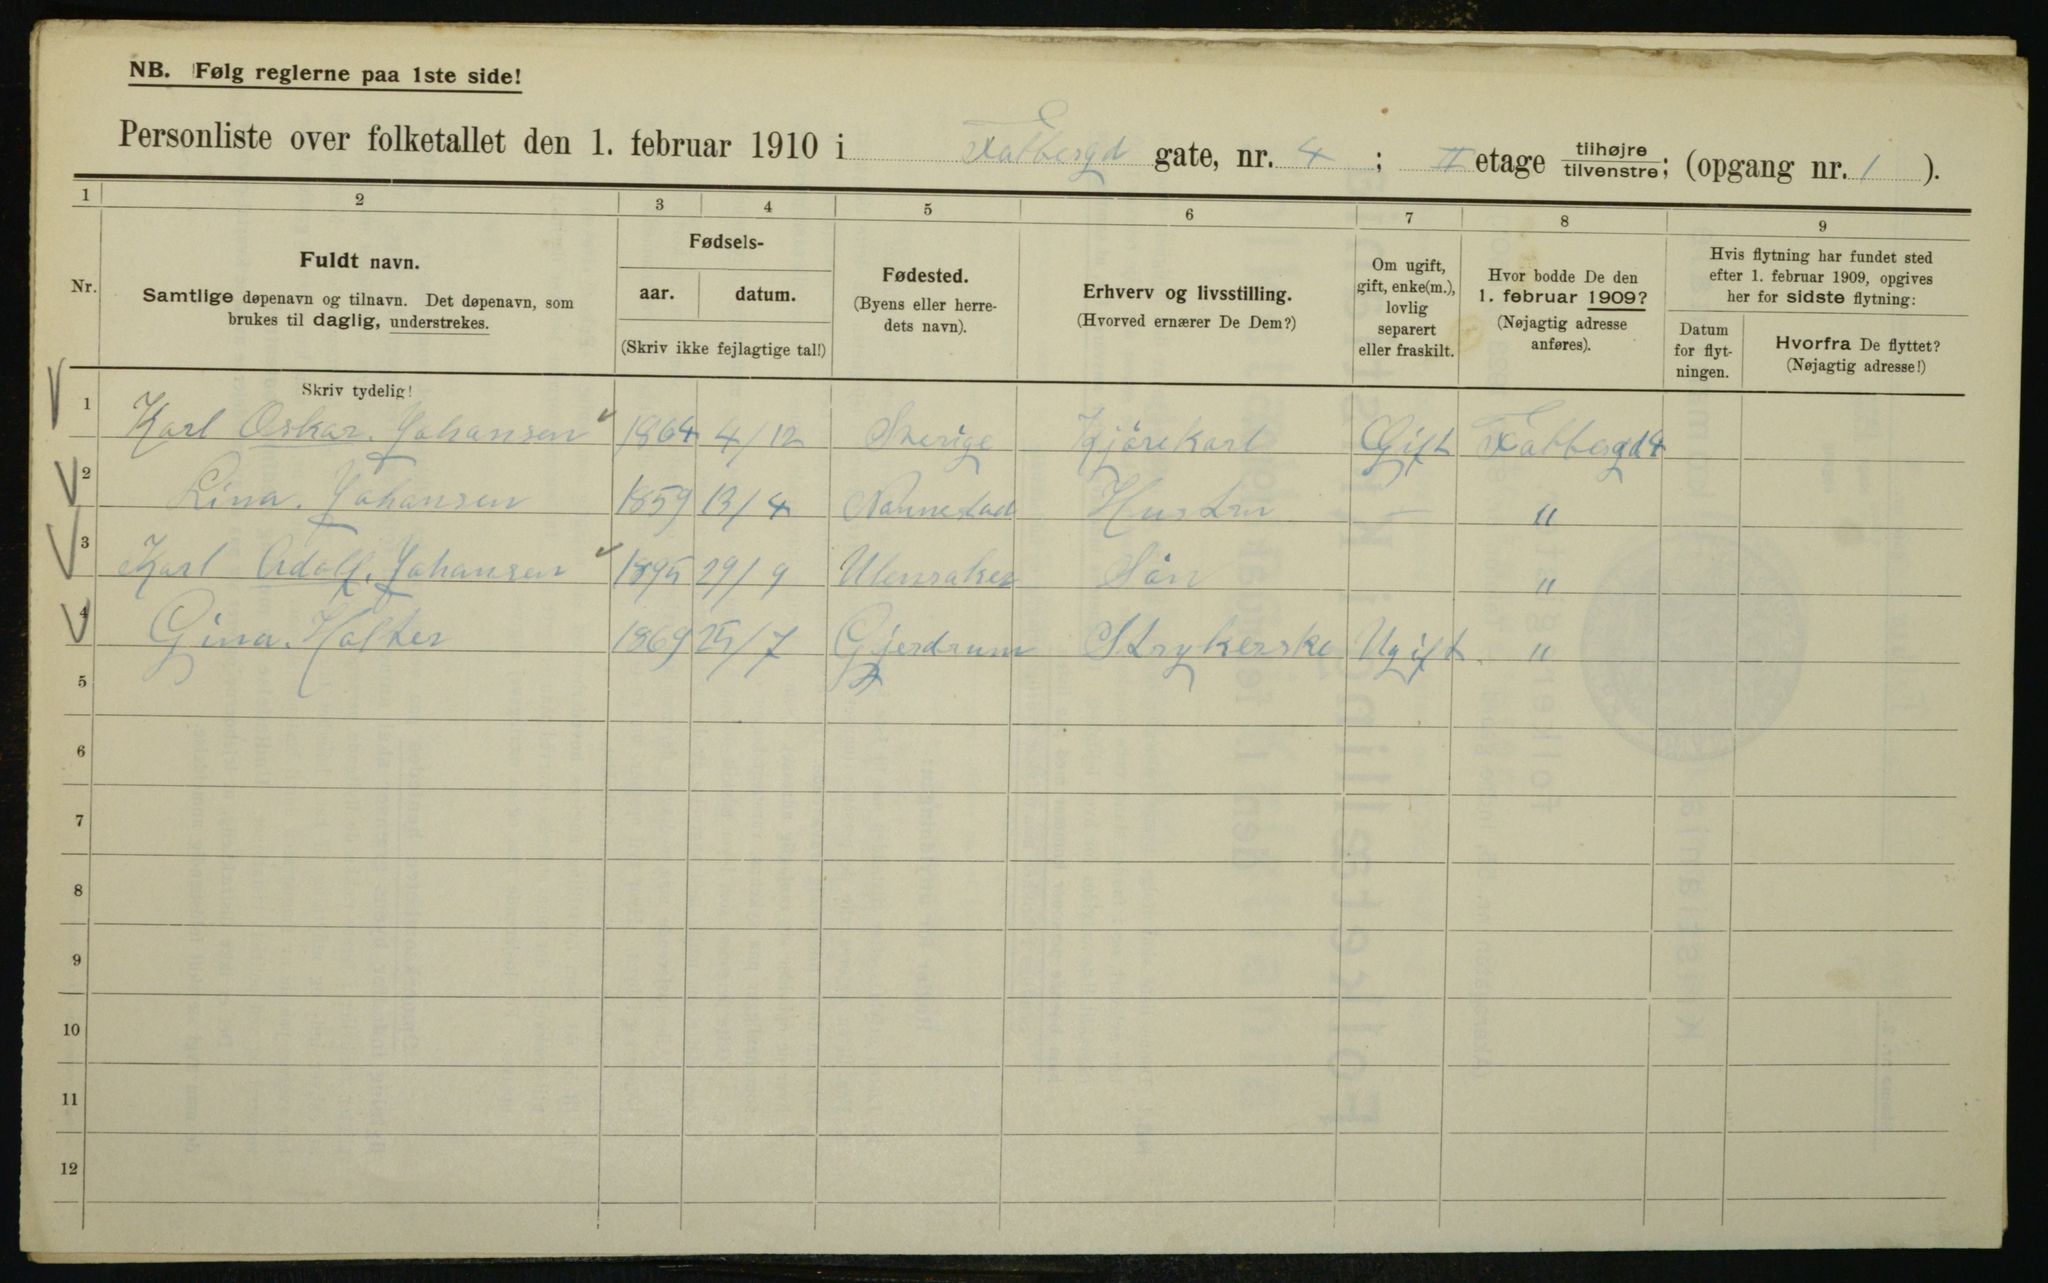 NB. Følg reglerne paa 1ste side!
Personliste over folketallet den 1. februar 1910 i Fabbergd gate, nr. 4 ; II etage tilhøjre/tilvenstre; (opgang nr. 1 ).
1 2 3 4 5 6 7 8 9
Nr.
Fuldt navn.
Samtlige døpenavn og tilnavn. Det døpenavn, som
brukes til daglig, understrekes.
Skriv tydelig!
Fødsels-
aar. datum.
(Skriv ikke fejlagtige tal!)
Fødested.
(Byens eller herre-
dets navn).
Erhverv og livsstilling.
(Hvorved ernærer De Dem?)
Om ugift,
gift, enke(m.),
lovlig
separert
eller fraskilt.
Hvor bodde De den
1. februar 1909?
(Nøjagtig adresse
anføres).
Hvis flytning har fundet sted
efter 1. februar 1909, opgives
her for sidste flytning:
Datum
for flyt-
ningen.
Hvorfra De flyttet?
(Nøjagtig adresse!)
1 Karl Oskar. Johansen 1864 4/12 Sverige Kjörekarl Gift Fabbergd 4
2 Lina. Johansen 1859 13/4 Nannestad Hustru — "
3 Karl Adolf. Johansen 1895 29/9 Ulensaker Sön "
4 Gina. Holter 1869 25/7 Gjerdrum Strykerske Ugift "
5
6
7
8
9
10
11
12